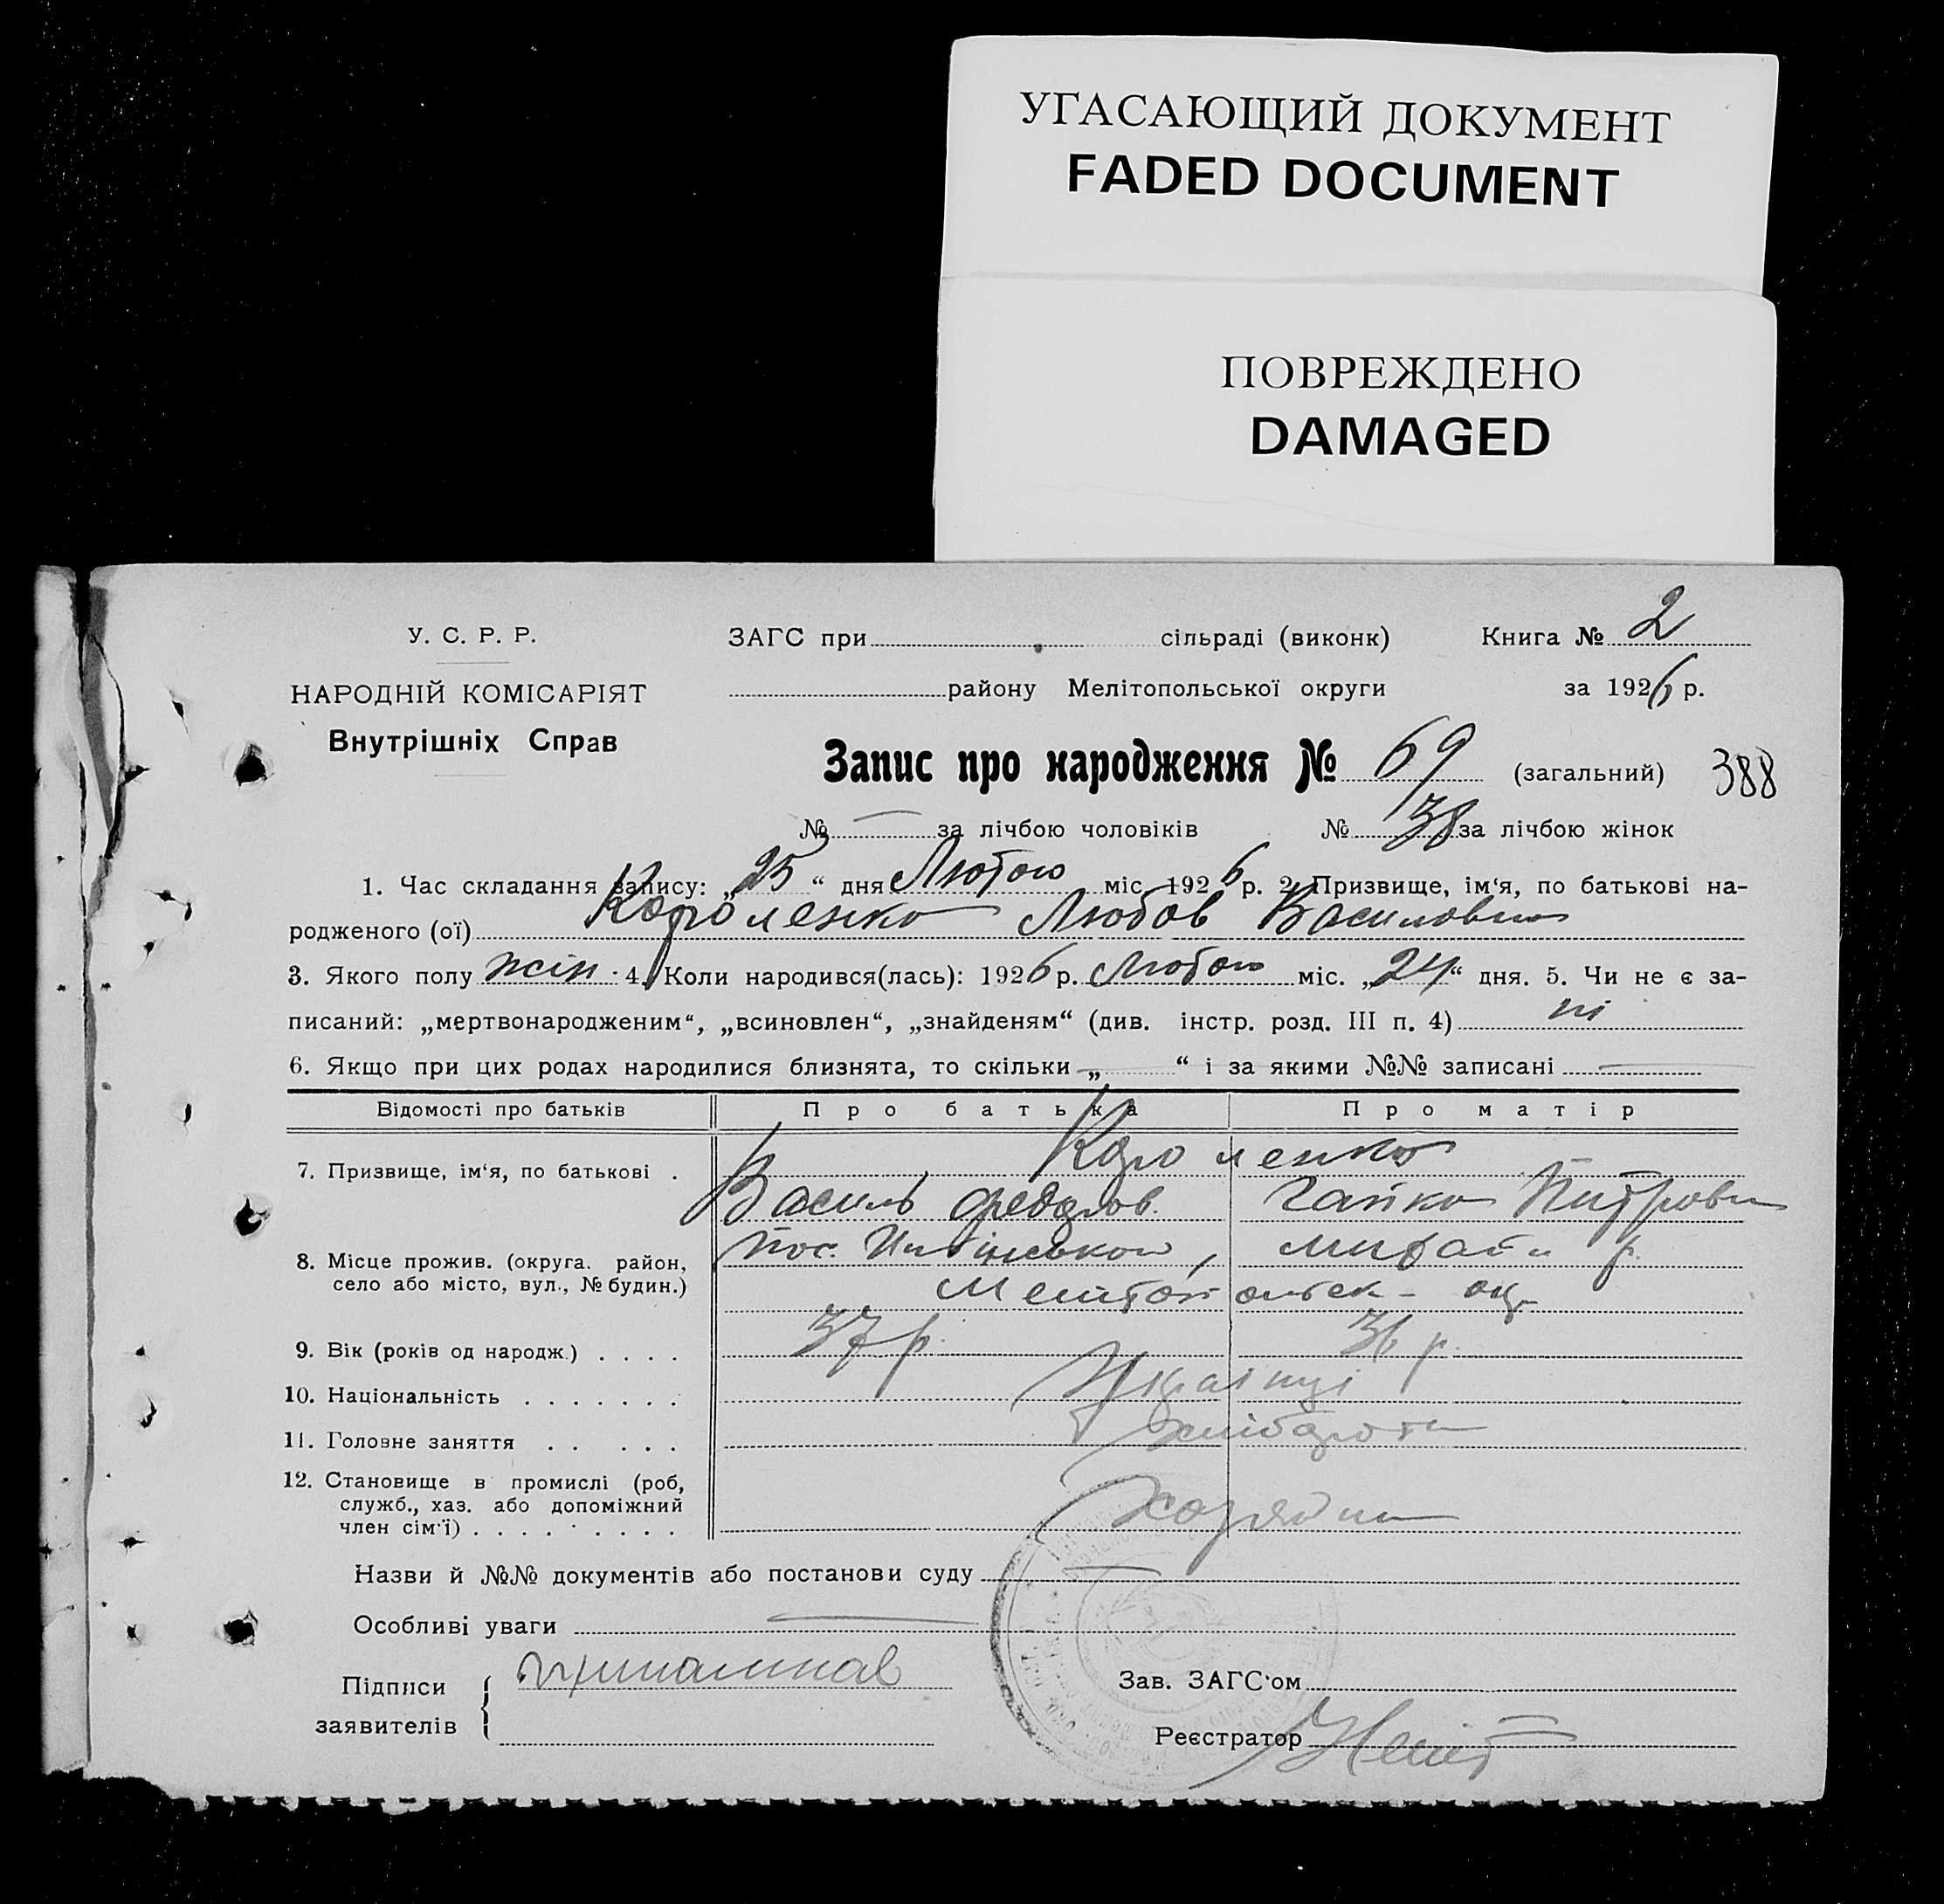 УГАСАЮЩИЙ ДОКУМЕНТ
FADED DOCUMENT
ПОВРЕЖДЕНО
DAMAGED
У. С. Р. Р.
ЗАГС при сільраді (виконк) Книга № 2
НАРОДНІЙ КОМІСАРІЯТ
району Мелітопольської округи за 1926 р.
Внутрішніх Справ
Запис про народження № 69 (загальний) 388
№ — за лічбою чоловіків № 38 за лічбою жінок
1. Час складання запису: „25“ дня Лютого міс. 1926 р. 2. Призвище, ім‘я, по батькові на-
родженого (ої) Короленко Любов Василовна
3. Якого полу жін. 4. Коли народився(лась): 1926 р. Лютого міс. „24“ дня. 5. Чи не є за-
писаний: „мертвонародженим“, „всиновлен“, „знайденям“ (див. інстр. розд. III п. 4) ні
6. Якщо при цих родах народилися близнята, то скільки „—“ і за якими №№ записані —
Відомості про батьків Про батька Про матір
7. Призвище, ім‘я, по батькові . Короленко
Василь Федоров.
8. Місце прожив. (округа. район,
село або місто, вул., № будин.)
пос.
Мелітопольск- окр.
9. Вік (років од народж.) . . . . 37 р. 36 р.
10. Національність . . . . . . . Українці
11. Головне заняття . . . . . хліборобн
12. Становище в промислі (роб,
служб., хаз. або допоміжний
член сім‘ї) . . . . . . . . . Хозяйн
Назви й №№ документів або постанови суду —
Особливі уваги —
Підписи
заявителів
Зав. ЗАГС‘ом
Реєстратор